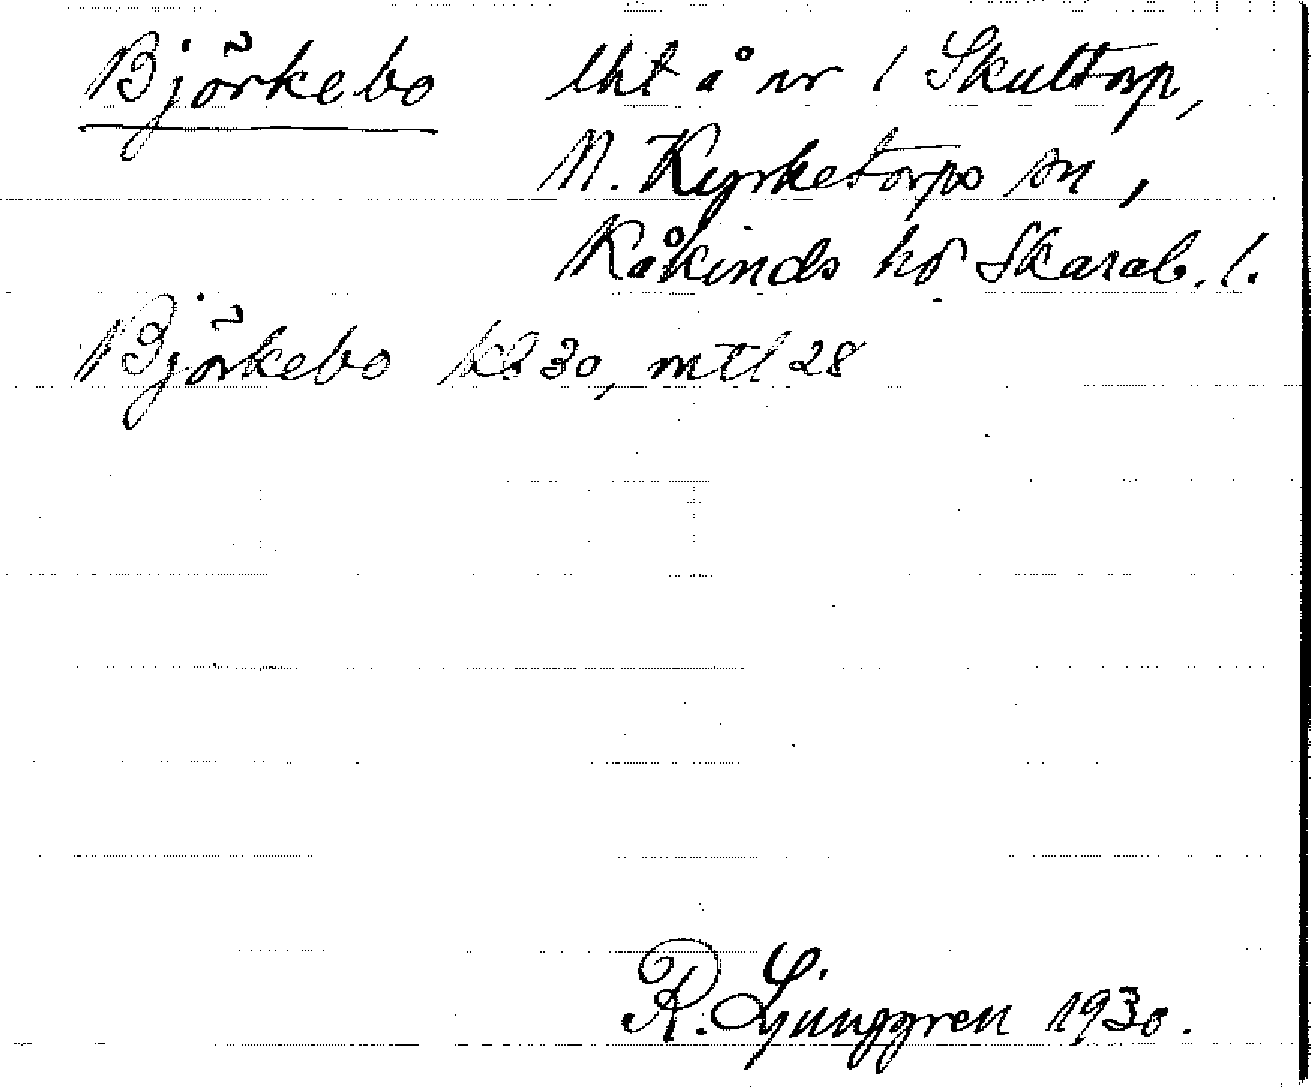 Björkebo lht å nr 1 Skultorp,
N. Kyrketorps sn,
Kåkinds hd Skarab. l.
Björkebo kb 30, mtl 28
R. Ljunggren 1930.